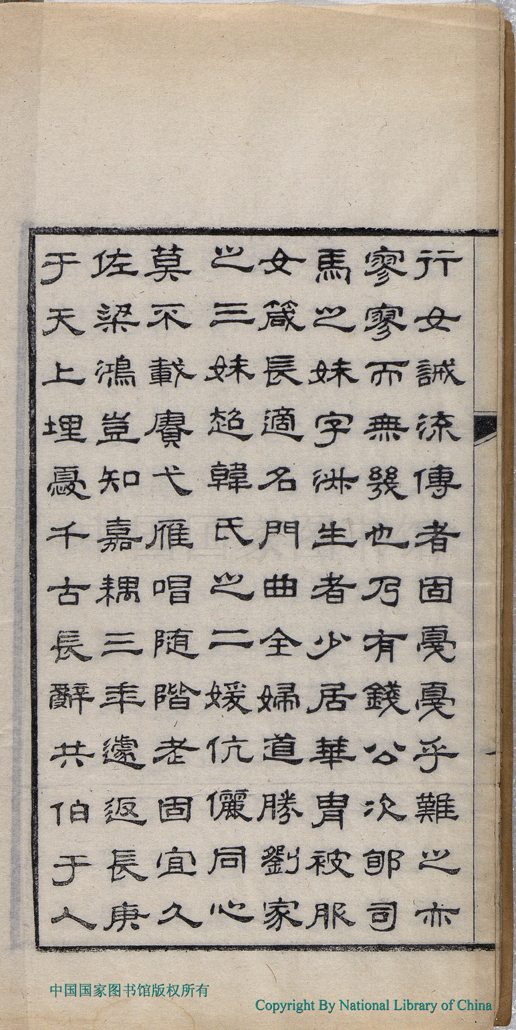 行女誡流傳者固戛戛乎難之亦
寥寥而無幾也乃有錢公次郇司
馬之妹字生者少居華胄被服
女箴長適名門曲全婦道勝劉家
之三妹超韓氏之二媛伉儷同心
莫不載賡弋雁唱随階老固宜久
佐梁鴻豈知嘉耦三年遽返長庚
于天上埋憂千古長辭共伯于人
中国国家图书馆版权所有
Copyright By National Library of China